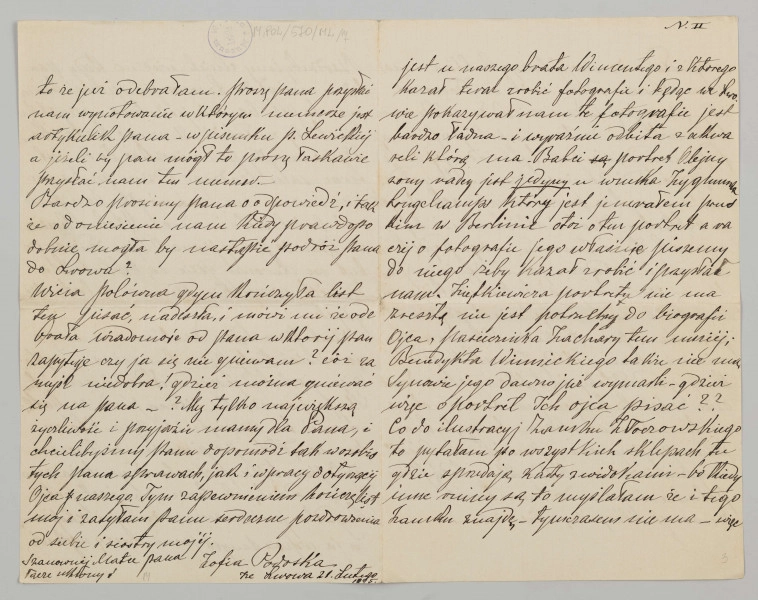 M.POL/570/ML/2
N. II
to że już odebrałam. Proszę pana
nam wynotowanie w którym numerze jest
artykułek pana - w pisemku p. Lewickiej
a jeżeli by pan mógł to proszę łaskawie
przysłać nam ten numer.
Bardzo prosimy pana o odpowiedź, i tak
że o doniesienie nam kiedy prawdopo
dobnie mogła by nastąpić podróż pana
do Lwowa?
Wicia Polówna gdym kończyła list
ten pisać, nadeszła, i mówi mi że ode
brała wiadomość od pana w której pan
zapytuje czy ja się nie gniewam? cóż za
myśl niedobra! gdzież można gniewać
się na pana - ? My tylko największą
życzliwość i przyjaźń mamy dla Pana, i
chcielibyśmy panu dopomódz tak w
tych pana sprawach, jak i w pracy dotyczącej
Ojca naszego. Tym zapewnieniem kończę list
mój i zasyłam panu serdeczne pozdrowienia
od siebie i siostry mojej.
Szanownej Matce pana
Zofia Podoska
ze Lwowa 21. Lutego
jest u naszego brata Wincentego i z którego
kazał teraz zrobić fotografie i będąc we Lwo
wie pokazywał nam te fotografie jest
bardzo ładna - i wyraźnie odbita z akwa
reli którą ma. Babci są portret Olejny
jest jedyny u wnuka Zygmunta
Longchamps który jest jenerałem prus
kim w Berlinie otóż o ten portret a ra
czej o fotografie jego właśnie piszemy
do niego żeby kazał zrobić i przysłać
nam. Ziętkiewicza portretu nie ma
zresztą nie jest potrzebny do biografii
Ojca, pasiecznika Zachary tem mniej;
Benedykta Winnickiego także nie ma
Synowie jego dawno już wymarli - gdzież
więc o portret Ich ojca pisać??
Co do ilustracyj Zamku
to pytałam po wszystkich sklepach tu
gdzie sprzedają karty z widokami - bo kiedy
inne ruiny są to myślałam że i tego
zamku znajdę - tymczasem nie ma - więc